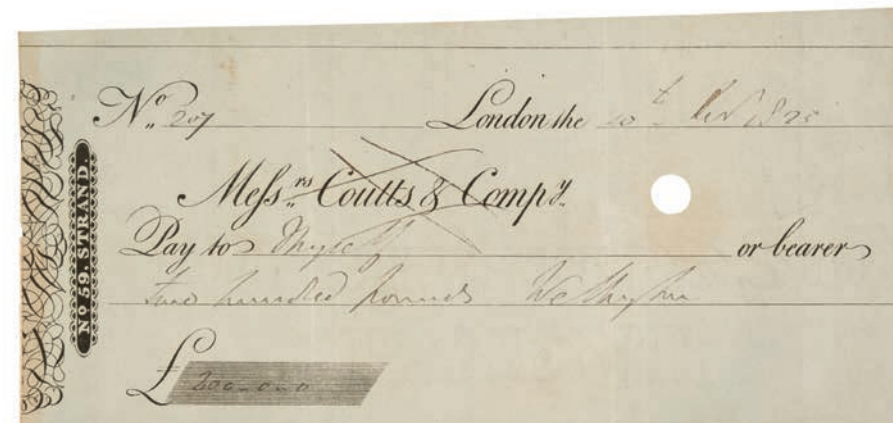 Nº 59. STRAND.
Nº 207 London the 20t 1825
Messrs Coutts & Compy.
Pay to Myself or bearer
two hundred pounds Wellington
£ 200-0-0